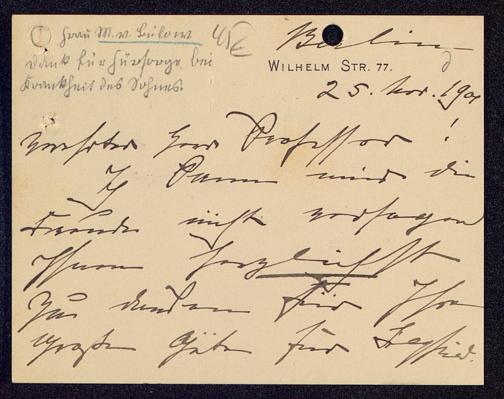 Frau M. v. Bülow
Dank für Fürsorge bei
Krankheit des Sohnes.
Berlin
WILHELM STR. 77.
25. Nov. 1901
Verehrter Herr Professor!
Ich kann mir die
Freude nicht versagen
Ihnen herzlichst
zu danken für Ihre
große Güte für